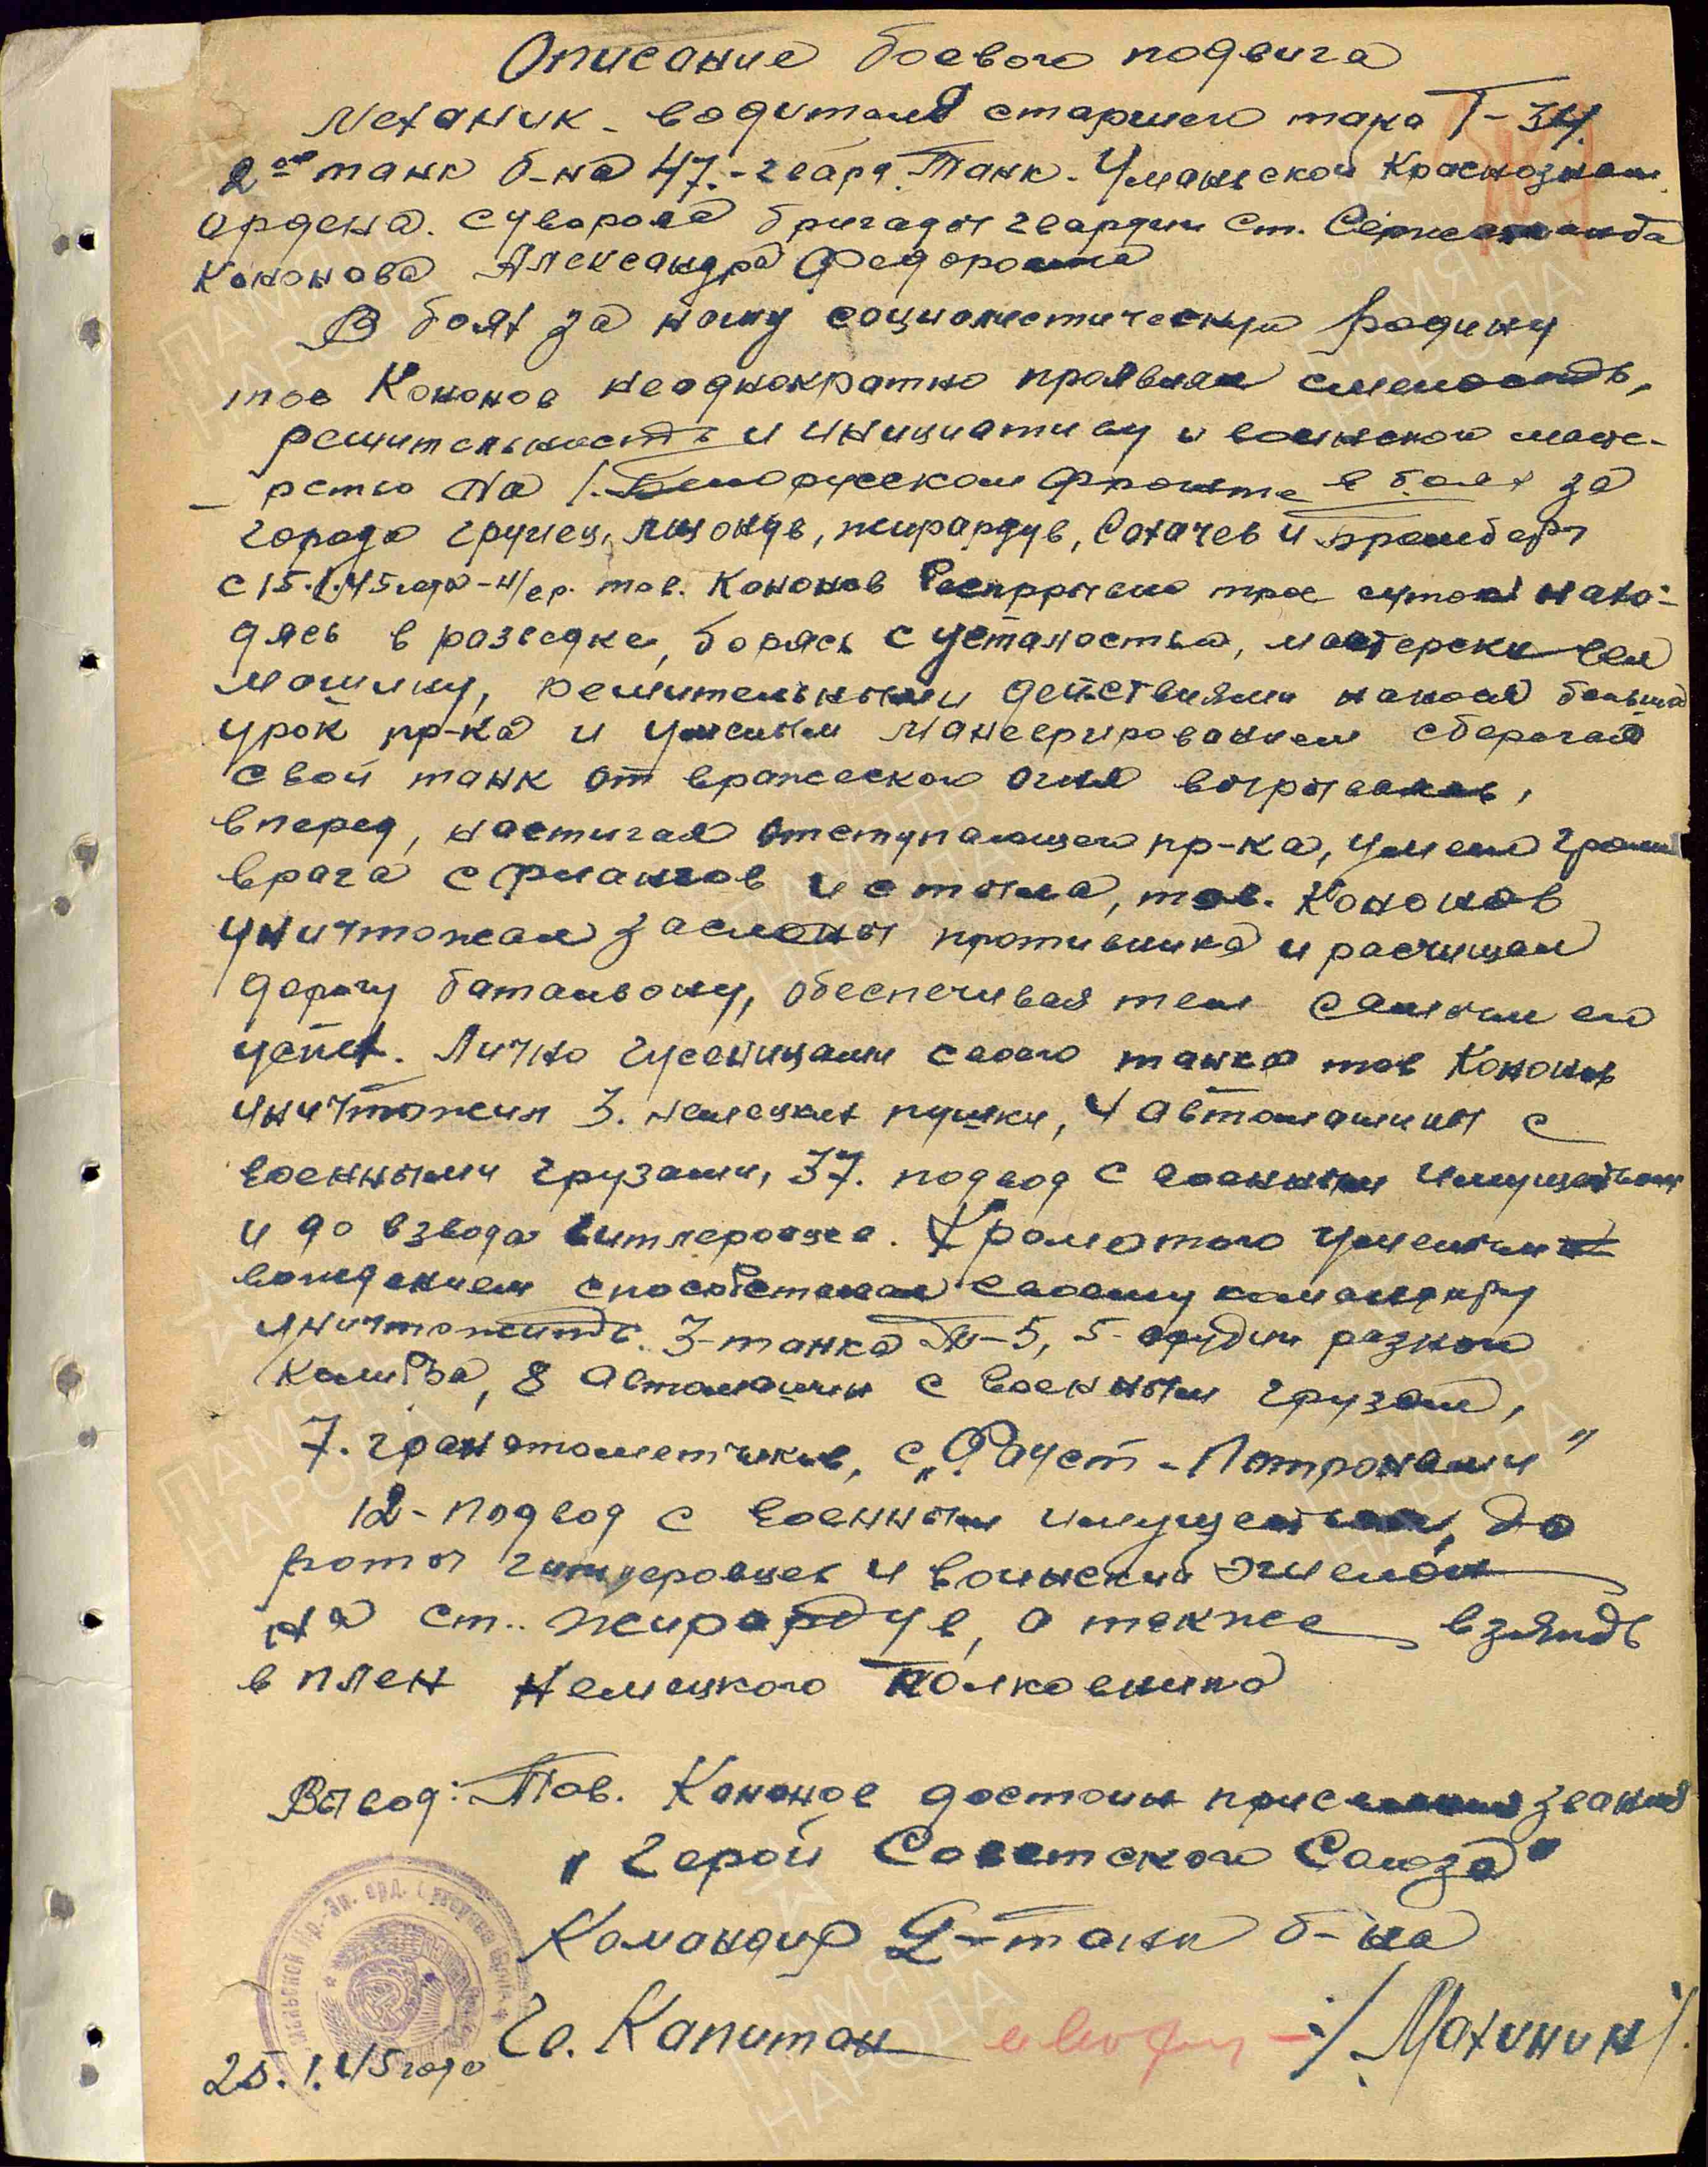 Описание боевого подвига
Механик-водителя старшего танка Т-34
2ого танк б-на 47.-гвард. Танк. Уманьской Краснознам.
ордена. Суворова бригады гвардии ст. Сержанта
Кононова Александра Федоровича
В боях за нашу социалистическую Родину
тов Кононов неоднократно проявлял смелость,
решительность и инициативу и воинское масте-
рство На 1. Белорусском фронте в боях за
города Груец, Мщонув, Жирардув, Сохачев и Бромберг
с 15.1.45 года - н/вр. тов. Кононов трое суток нахо-
дясь в разведке, борясь с усталостью, мастерски вел
машину, решительными действиями нанося большой
урок пр-ка и умелым маневрированием сберегая
свой танк от вражеского огня вырывался,
вперед, настигая отступающего пр-ка, умело громил
врага с флангов и с тыла, тов. Кононов
уничтожал заслоны противника и расчищал
дорогу батальону, обеспечивая тем самым его
успех. Лично гусеницами своего танка тов Кононов
уничтожил 3. немецких пушки, 4 автомашины с
военными грузами, 37. подвод с военным имуществом
и до взвода гитлеровцев. Кроме того умелым
вождением способствовал своему командиру
уничтожить. 3-танка Т-5, 5-орудий разной
калибра, 8 автомашин с военным грузом,
7. гранатометчиков, с „Фауст-Патронами"
12-подвод с военным имуществом, до
роты гитлеровцев и воинский эшелон
на ст.. Жирардув, а также взять
в плен немецкого полковника
Вывод: Тов. Кононов достоин присвоения звания
„Герой Советского Союза"
Командир 2-танк б-на
Гв. Капитан /Махинин/
25.1.45 года
ПАМЯТЬ
НАРОДА